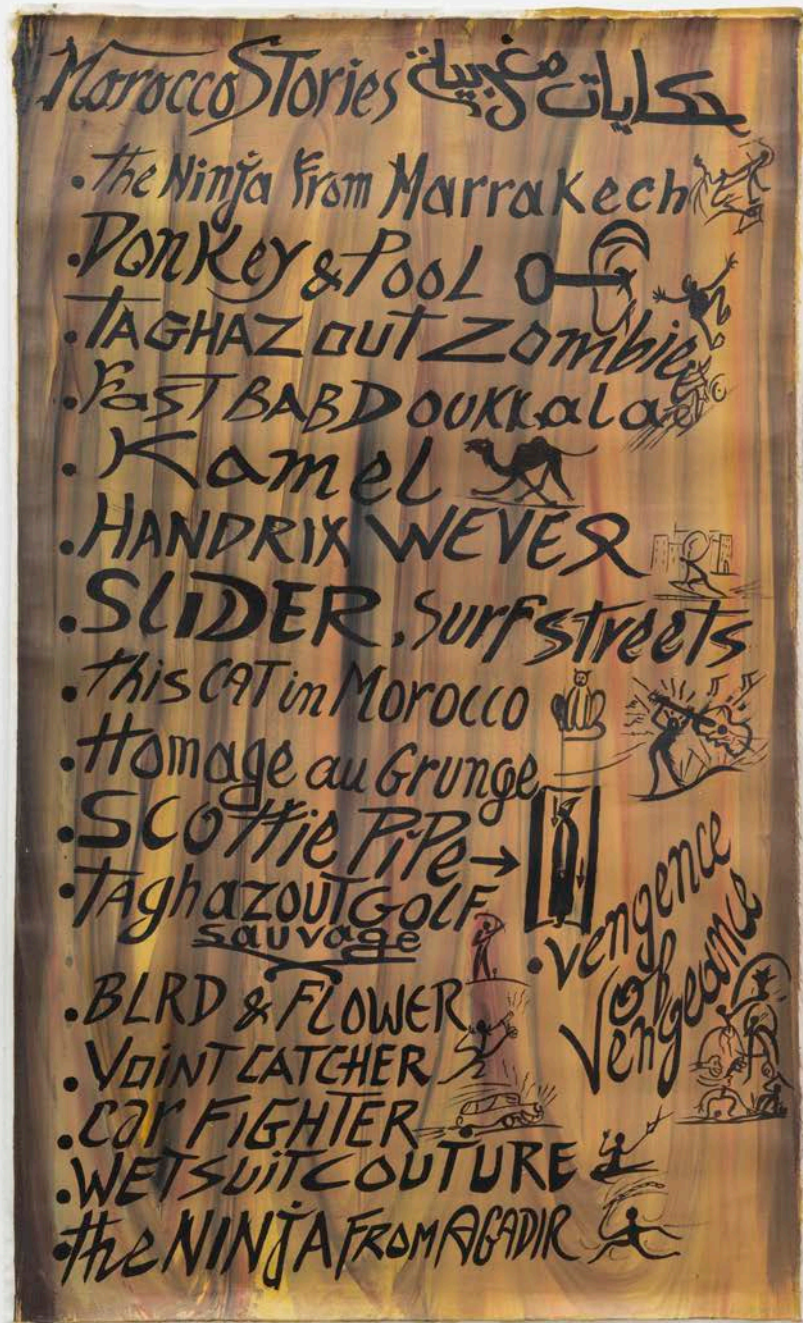 Morocco Stories حكايات مغربية
• the Ninja From Marrakech
• Donkey & Pool
• TAGHAZOUT Zombie
• Fast BAB Doukkala
• Kamel
• HANDRIX WEVER
• SLIDER, Surf streets
• this CAT in Morocco
• Homage au Grunge
• SCOttie PiPe →
• Taghazout GOLF
sauvage
• vengence
of
Vengeance
• BLRD & FLOWER
• VOINT CATCHER
• Car FiGHTER
• WETSUIT COUTURE
• the NINJA FROM AGADIR